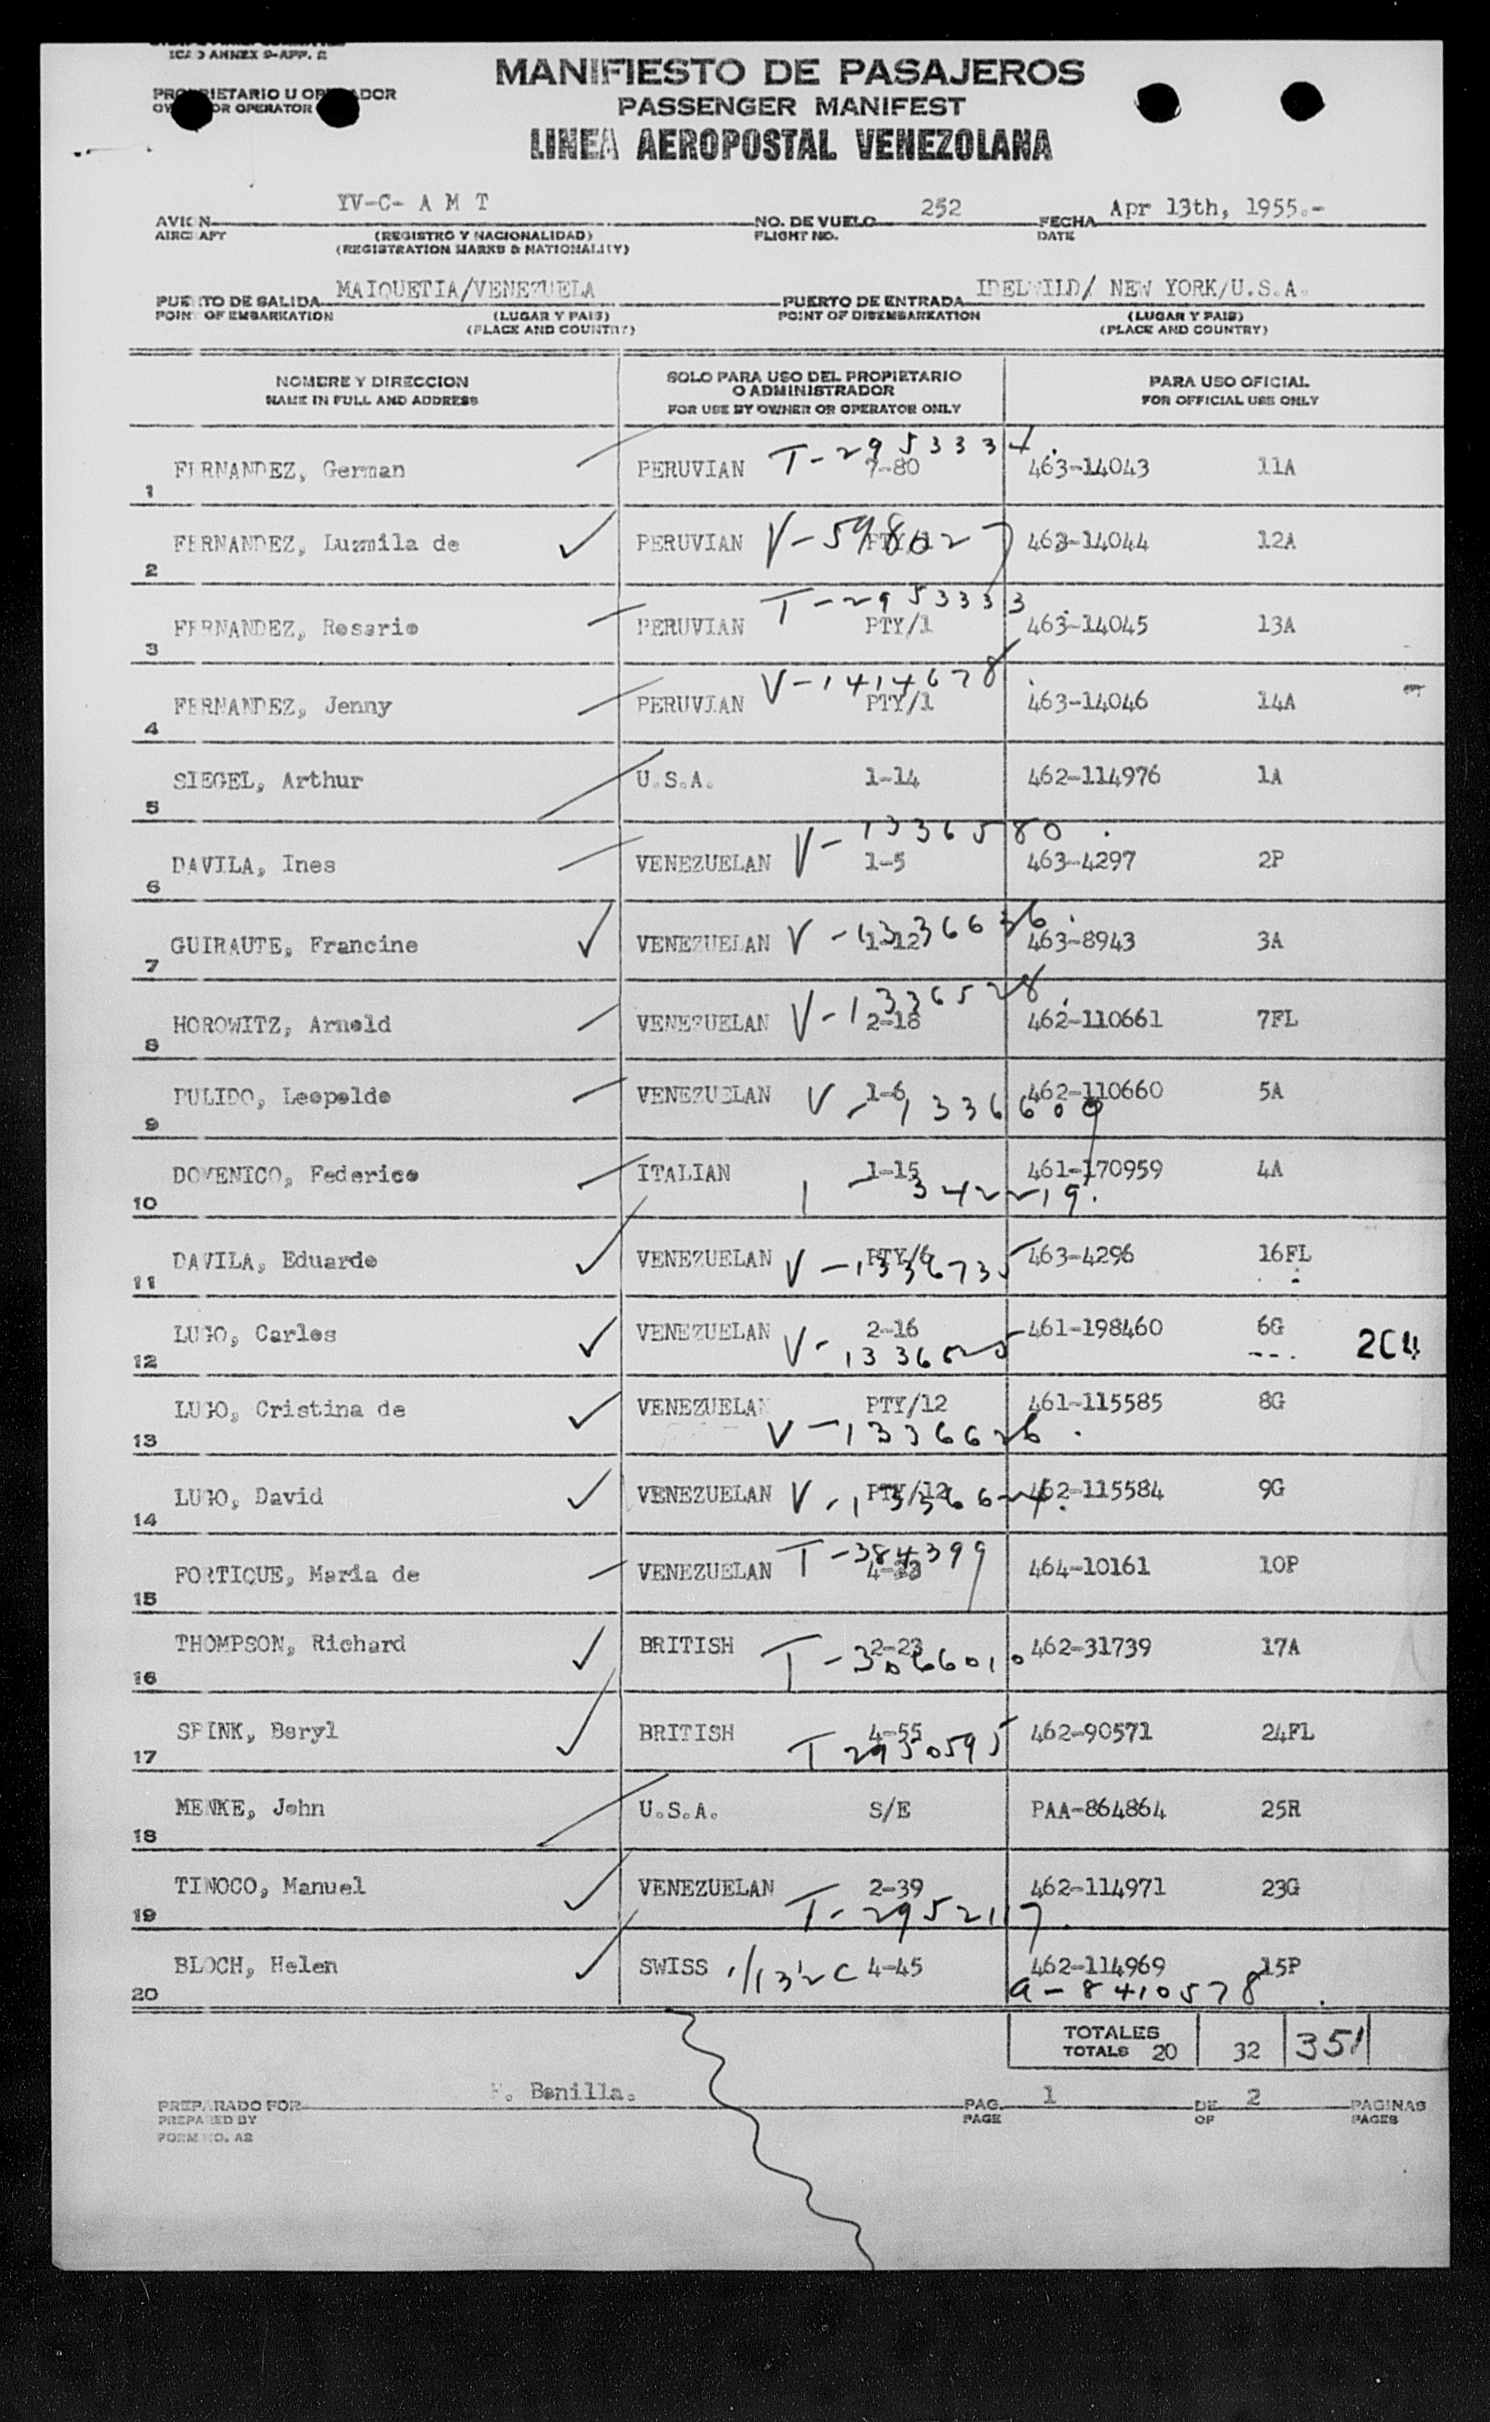 ICAO ANNEX 9-APP. E
MANIFIESTO DE PASAJEROS
PROPRIETARIO U OPERADOR
OWNER OR OPERATOR
PASSENGER MANIFEST
LINEA AEROPOSTAL VENEZOLANA
AVION YV-C- A M T NO. DE VUELO 252 FECHA Apr 13th, 1955.-
AIRCRAFT (REGISTRO Y NACIONALIDAD) FLIGHT NO. DATE
(REGISTRATION MARKS & NATIONALITY)
PUERTO DE SALIDA MAIQUETIA/VENEZUELA PUERTO DE ENTRADA IDELWILD/ NEW YORK/U.S.A.
POINT OF EMBARKATION (LUGAR Y PAIS) POINT OF DISEMBARKATION (LUGAR Y PAIS)
(PLACE AND COUNTRY) (PLACE AND COUNTRY)
NOMBRE Y DIRECCION SOLO PARA USO DEL PROPIETARIO PARA USO OFICIAL
O ADMINISTRADOR
NAME IN FULL AND ADDRESS FOR USE BY OWNER OR OPERATOR ONLY FOR OFFICIAL USE ONLY
T-2953334.
1 FERNANDEZ, German PERUVIAN 7-80 463-14043 11A
2 FERNANDEZ, Luzmila de PERUVIAN V-598027 463-14044 12A
T-2953333
3 FERNANDEZ, Rosario PERUVIAN PTY/1 463-14045 13A
V-1414678
4 FERNANDEZ, Jenny PERUVIAN PTY/1 463-14046 14A
5 SIEGEL, Arthur U.S.A. 1-14 462-114976 1A
V-1336580
6 DAVILA, Ines VENEZUELAN 1-5 463-4297 2P
7 GUIRAUTE, Francine VENEZUELAN V-1336636 1-12 463-8943 3A
V-1336528
8 HOROWITZ, Arnold VENEZUELAN 2-18 462-110661 7FL
9 PULIDO, Leopoldo VENEZUELAN 1-6 462-110660 5A
V-1336609
10 DOMENICO, Federico ITALIAN 1-15 461-170959 4A
1-342219.
11 DAVILA, Eduardo VENEZUELAN PTY/6 463-4296 16FL
V-1336735
12 LUGO, Carlos VENEZUELAN 2-16 461-198460 6G 2C4
V-1336625
13 LUGO, Cristina de VENEZUELAN PTY/12 461-115585 8G
V-1336626.
14 LUGO, David VENEZUELAN V-1336624. PTY/12 462-115584 9G
T-384399
15 FORTIQUE, Maria de VENEZUELAN 464-10161 10P
16 THOMPSON, Richard BRITISH 2-23 462-31739 17A
T-3066010
17 SPINK, Beryl BRITISH 4-55 462-90571 24FL
T 2950595
18 MENKE, John U.S.A. S/E PAA-864864 25R
19 TINOCO, Manuel VENEZUELAN 2-39 462-114971 23G
T-2952117.
20 BLOCH, Helen SWISS 4-45 462-114969 15P
a-8410578.
TOTALES
TOTALS 20 32 351
PREPARADO POR Bonilla. PAG. 1 DE 2 PAGINAS
PREPARED BY PAGE OF PAGES
FORM NO. A2